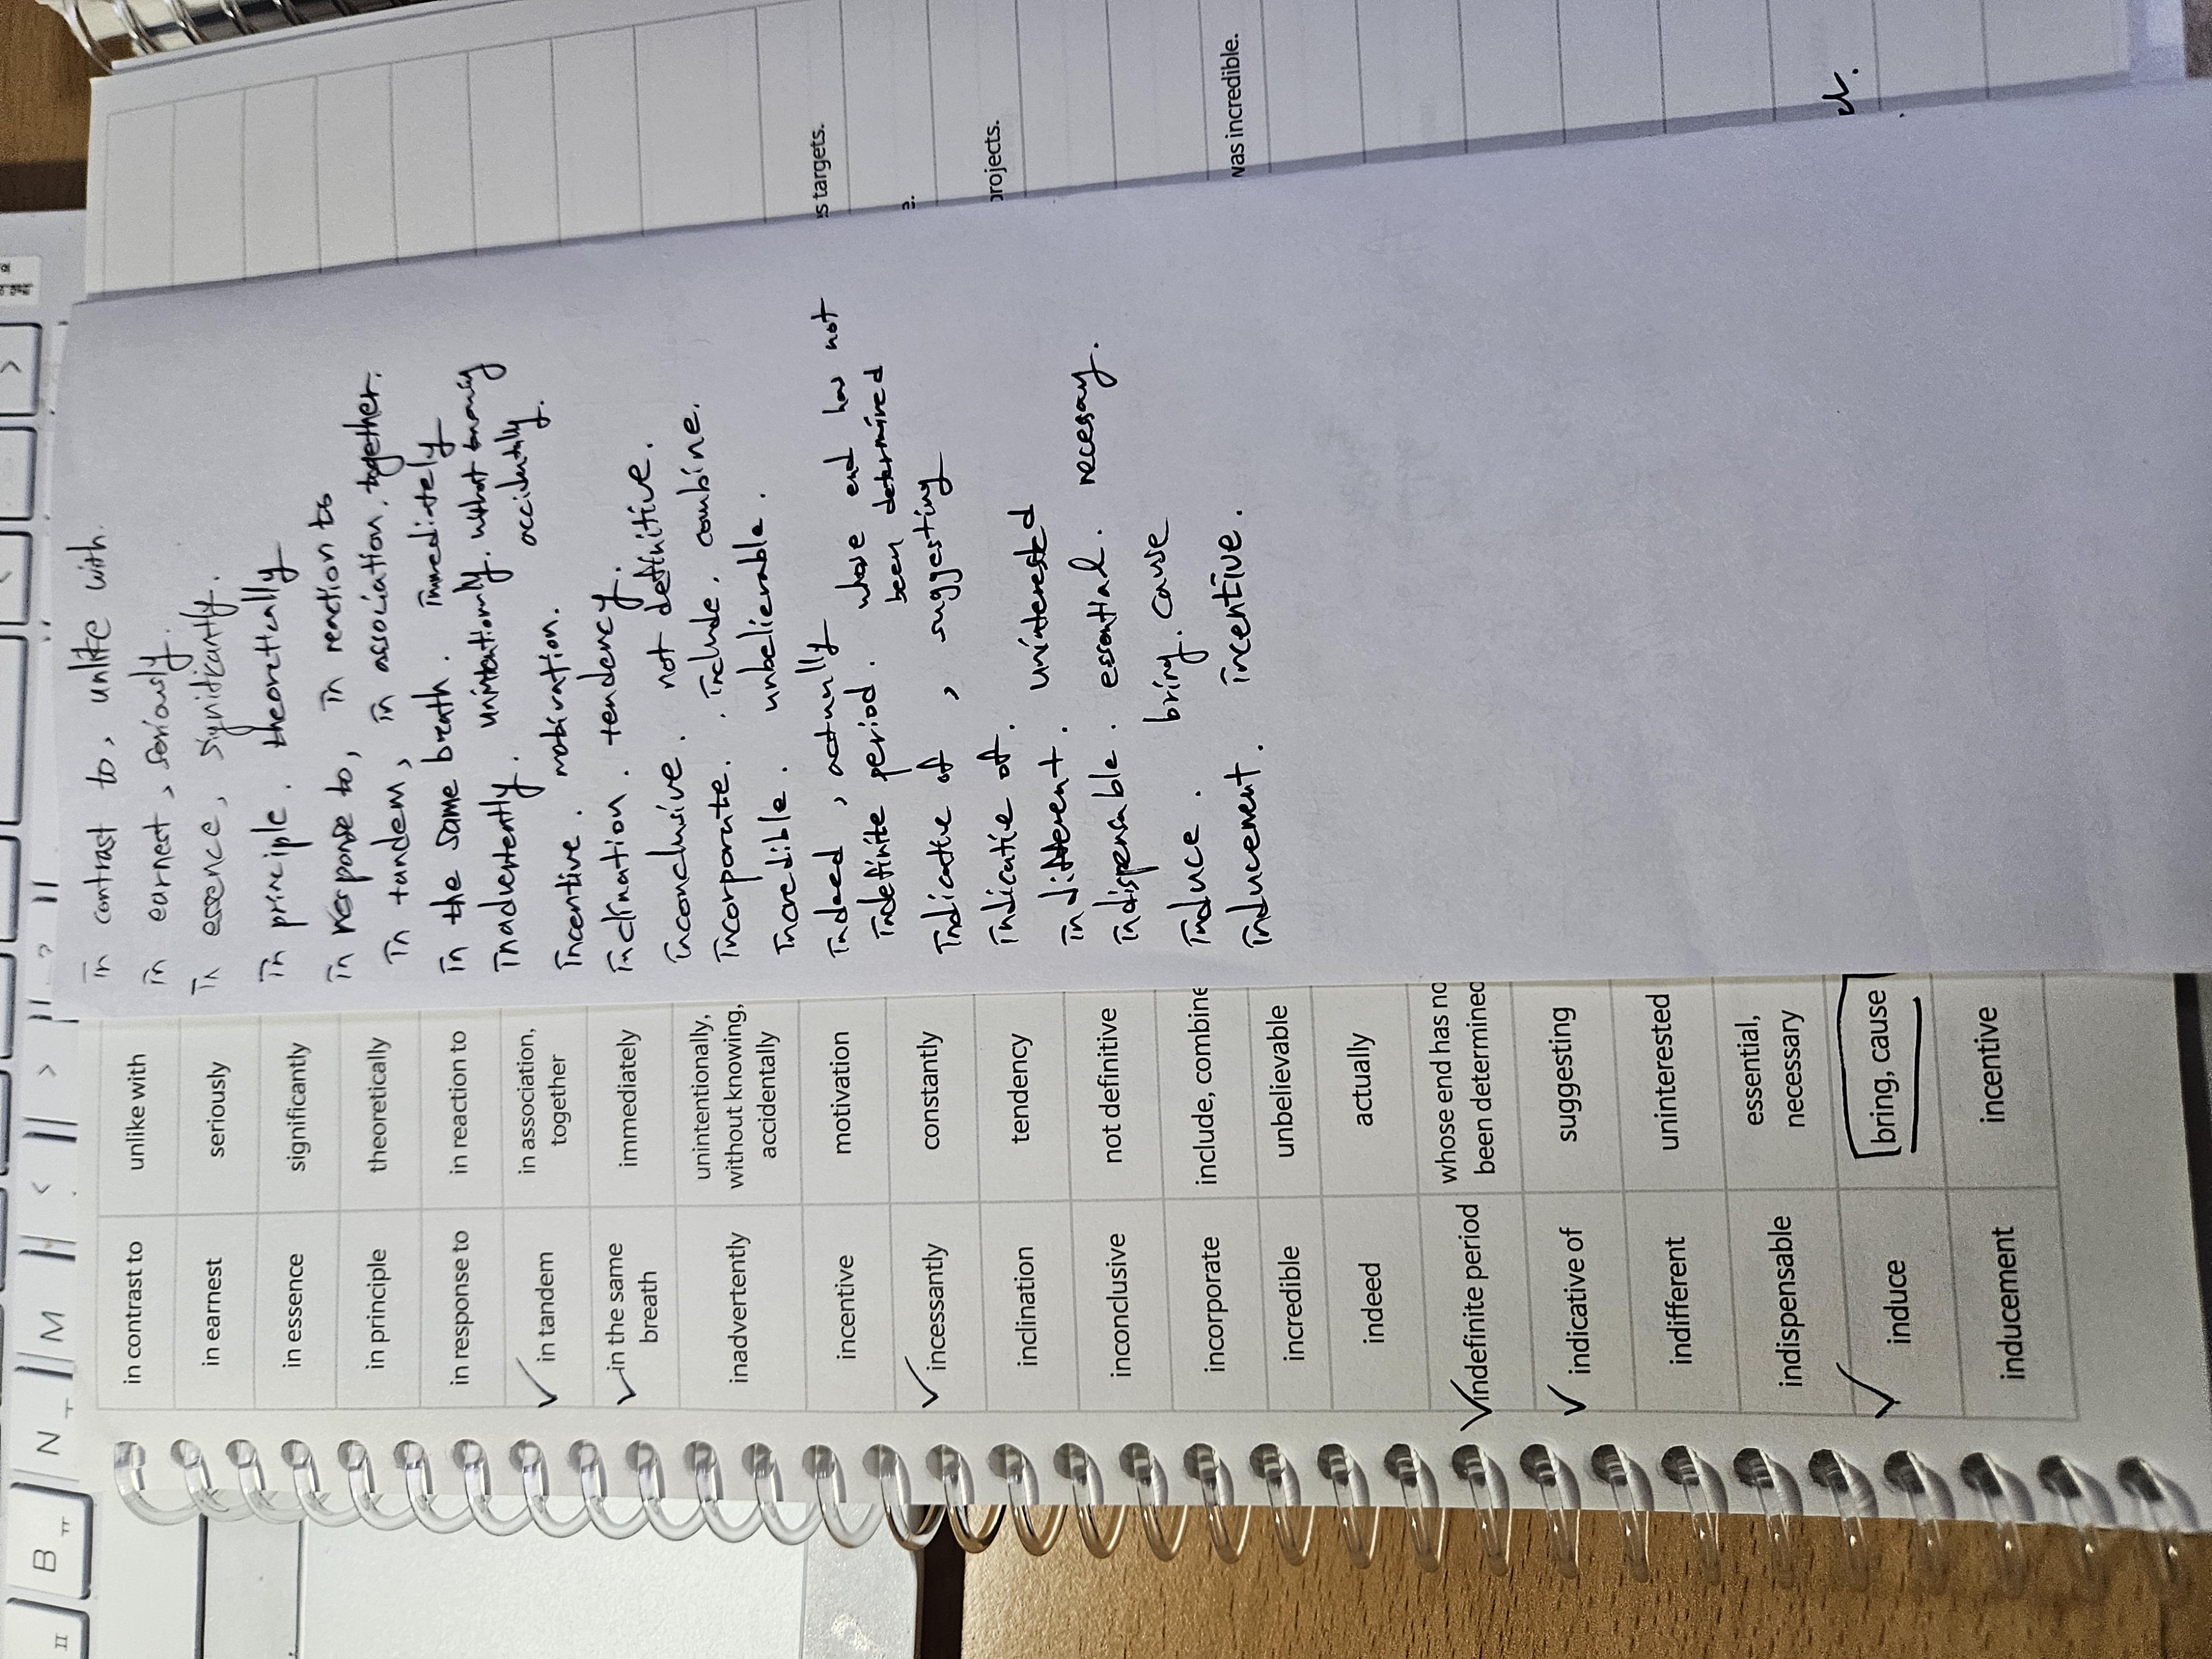 in contrast to unlike with
in earnest seriously
in essence significantly
in principle theoretically
in response to in reaction to
in tandem in association,
together
in the same
breath immediately
inadvertently unintentionally,
without knowing,
accidentally
incentive motivation
incessantly constantly
inclination tendency
inconclusive not definitive
incorporate include, combine
incredible unbelievable
indeed actually
indefinite period whose end has no
been determined
indicative of suggesting
indifferent uninterested
indispensable essential,
necessary
induce bring, cause
inducement incentive
in contrast to, unlike with.
in earnest, seriously.
In essence, significantly.
in principle. theoretically
in response to, in reaction to
In tandem, in association, together.
in the same breath. immediately
inadvertently. unintentionly. without knowing
accidentally.
incentive. motivation.
inclination. tendency.
inconclusive. not definitive.
incorporate. include. combine.
incredible. unbelievable.
indeed, actually
indefinite period. whose end has not
been determined
indicative of, suggesting
indicatie of.
indifferent. uninterested
indispensable. essential. necessay.
induce. bring. cause
inducement. incentive.
s targets.
e.
projects.
was incredible.
B
N
M